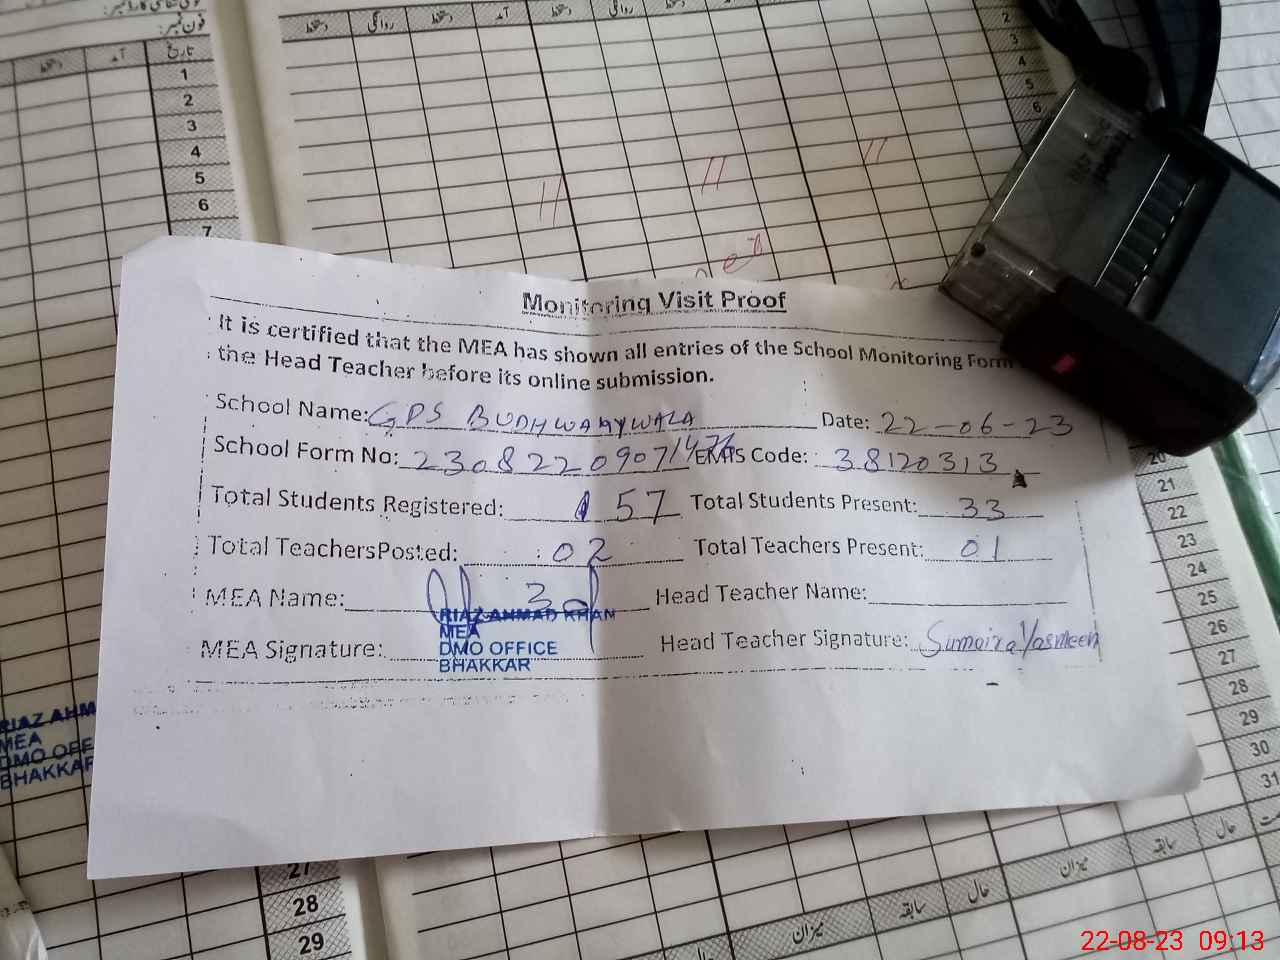 فون نمبر:
دستخط آمد تاریخ
1
2
3
4
5
6
7
دستخط روانگی دستخط آمد دستخط روانگی دستخط
2
3
4
5
6
Monitoring Visit Proof
It is certified that the MEA has shown all entries of the School Monitoring Form
the Head Teacher before its online submission.
School Name: GPS BUDHWANYWALA Date: 22-06-23
School Form No: 2308220907/1426 EMIS Code: 38120313
Total Students Registered: 57 Total Students Present: 33
Total TeachersPosted: 02 Total Teachers Present: 01
MEA Name: Head Teacher Name:
RIAZ AHMAD KHAN
MEA
MEA Signature: DMO OFFICE Head Teacher Signature: Sumaira Yasmeen
BHAKKAR
RIAZ AHM
MEA
DMO OFF
BHAKKAR
20
21
22
23
24
25
26
27
28
29
30
31
27
28
29
میزان حال سابقہ میزان سابقہ حال
22-08-23 09:13